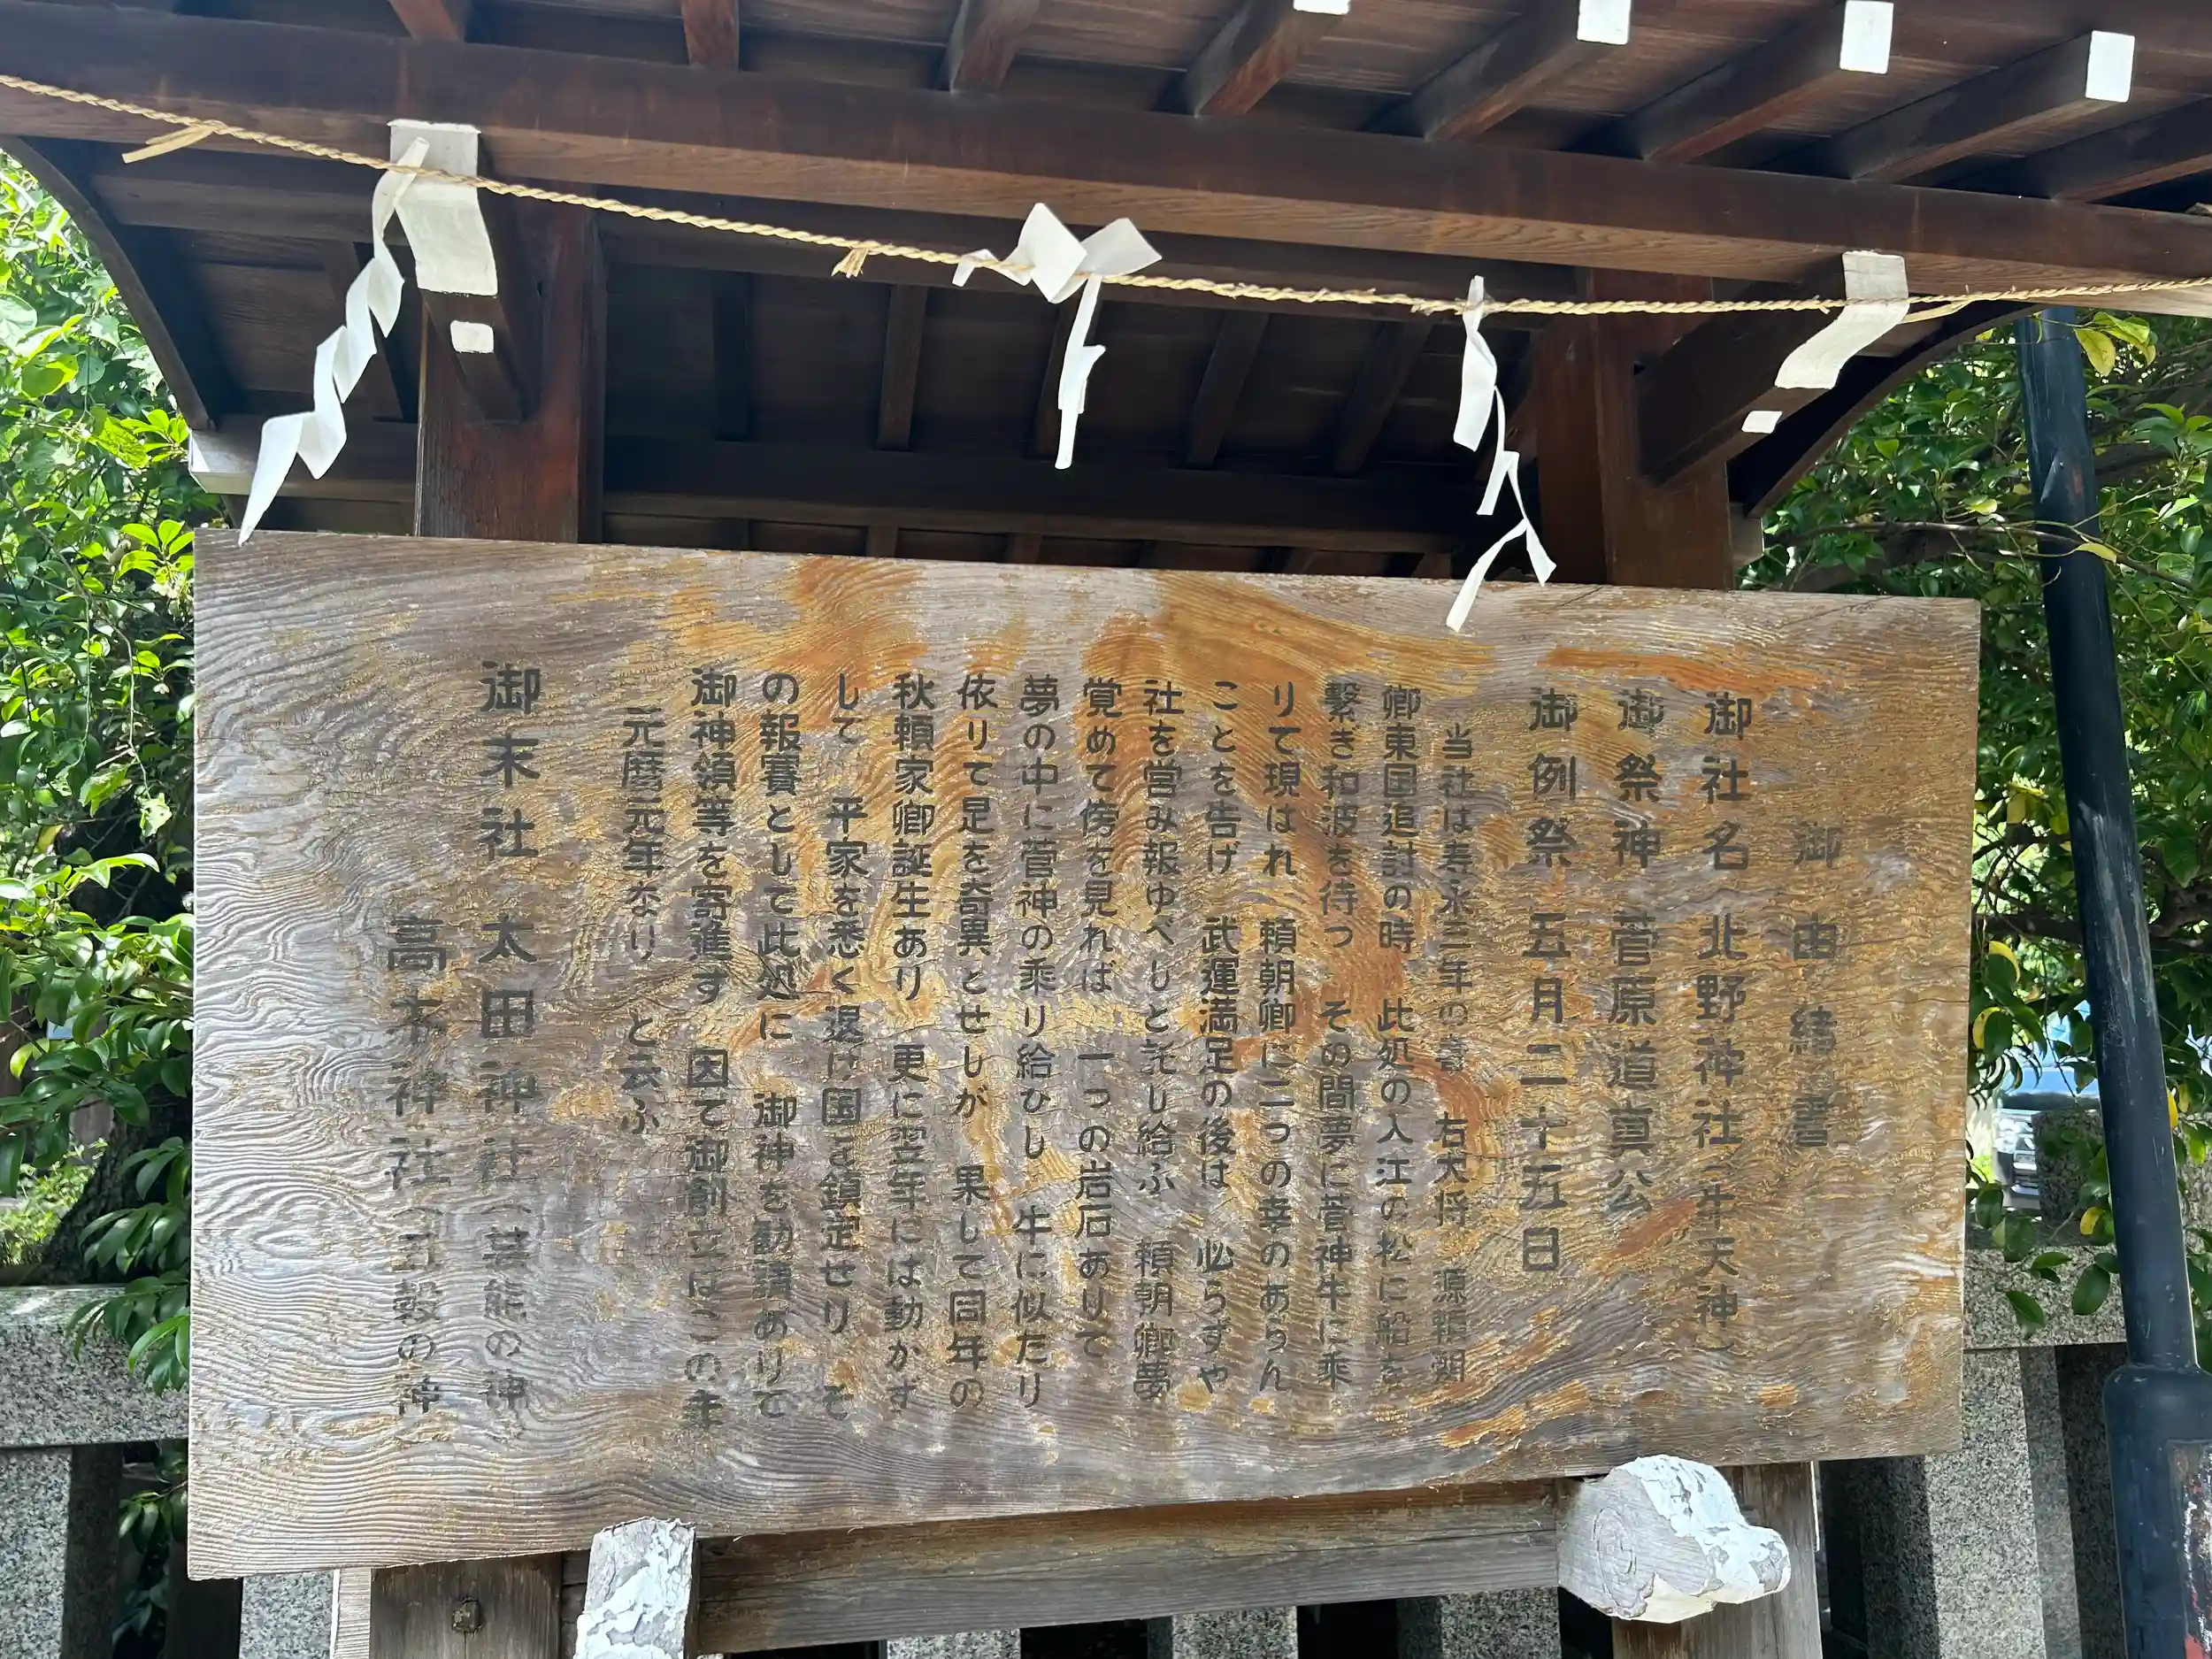 御由緒書
御社名 北野神社(牛天神)
御祭神 菅原道真公
御例祭 五月二十五日
当社は寿永三年の春 右大将 源頼朝
卿東国追討の時 此処の入江の松に船を
繋ぎ和波を待つ その間夢に菅神牛に乗
りて現はれ 頼朝卿に二つの幸のあらん
ことを告げ 武運満足の後は 必らずや
社を営み報ゆべしと託し給ふ 頼朝卿夢
覚めて傍を見れば 一つの岩石ありて
夢の中に菅神の乗り給ひし 牛に似たり
依りて足を奇異とせしが 果して同年の
秋頼家卿誕生あり 更に翌年には動かず
して 平家を悉く退け国を鎮定せり そ
の報賽として此処に 御神を勧請ありて
御神領等を寄進す 因て御創立はこの年
元暦元年なり と云ふ
御末社 太田神社(芸能の神
高木神社(五穀の神